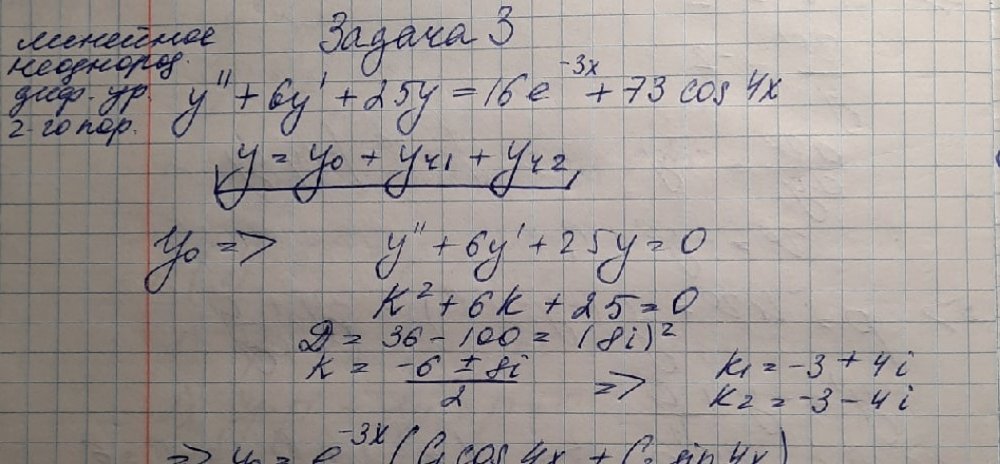 Задача 3
линейное
неоднород.
диф. ур.
2-го пор.
y'' + 6y' + 25y = 16e^{-3x} + 73 cos 4x
y = y₀ + yч1 + yч2
y₀ => y'' + 6y' + 25y = 0
K² + 6K + 25 = 0
D = 36 - 100 = (8i)²
K = \frac{-6 ± 8i}{2} => K₁ = -3 + 4i
K₂ = -3 - 4i
=> y₀ = e^{-3x} (C₁ cos 4x + C₂ sin 4x)